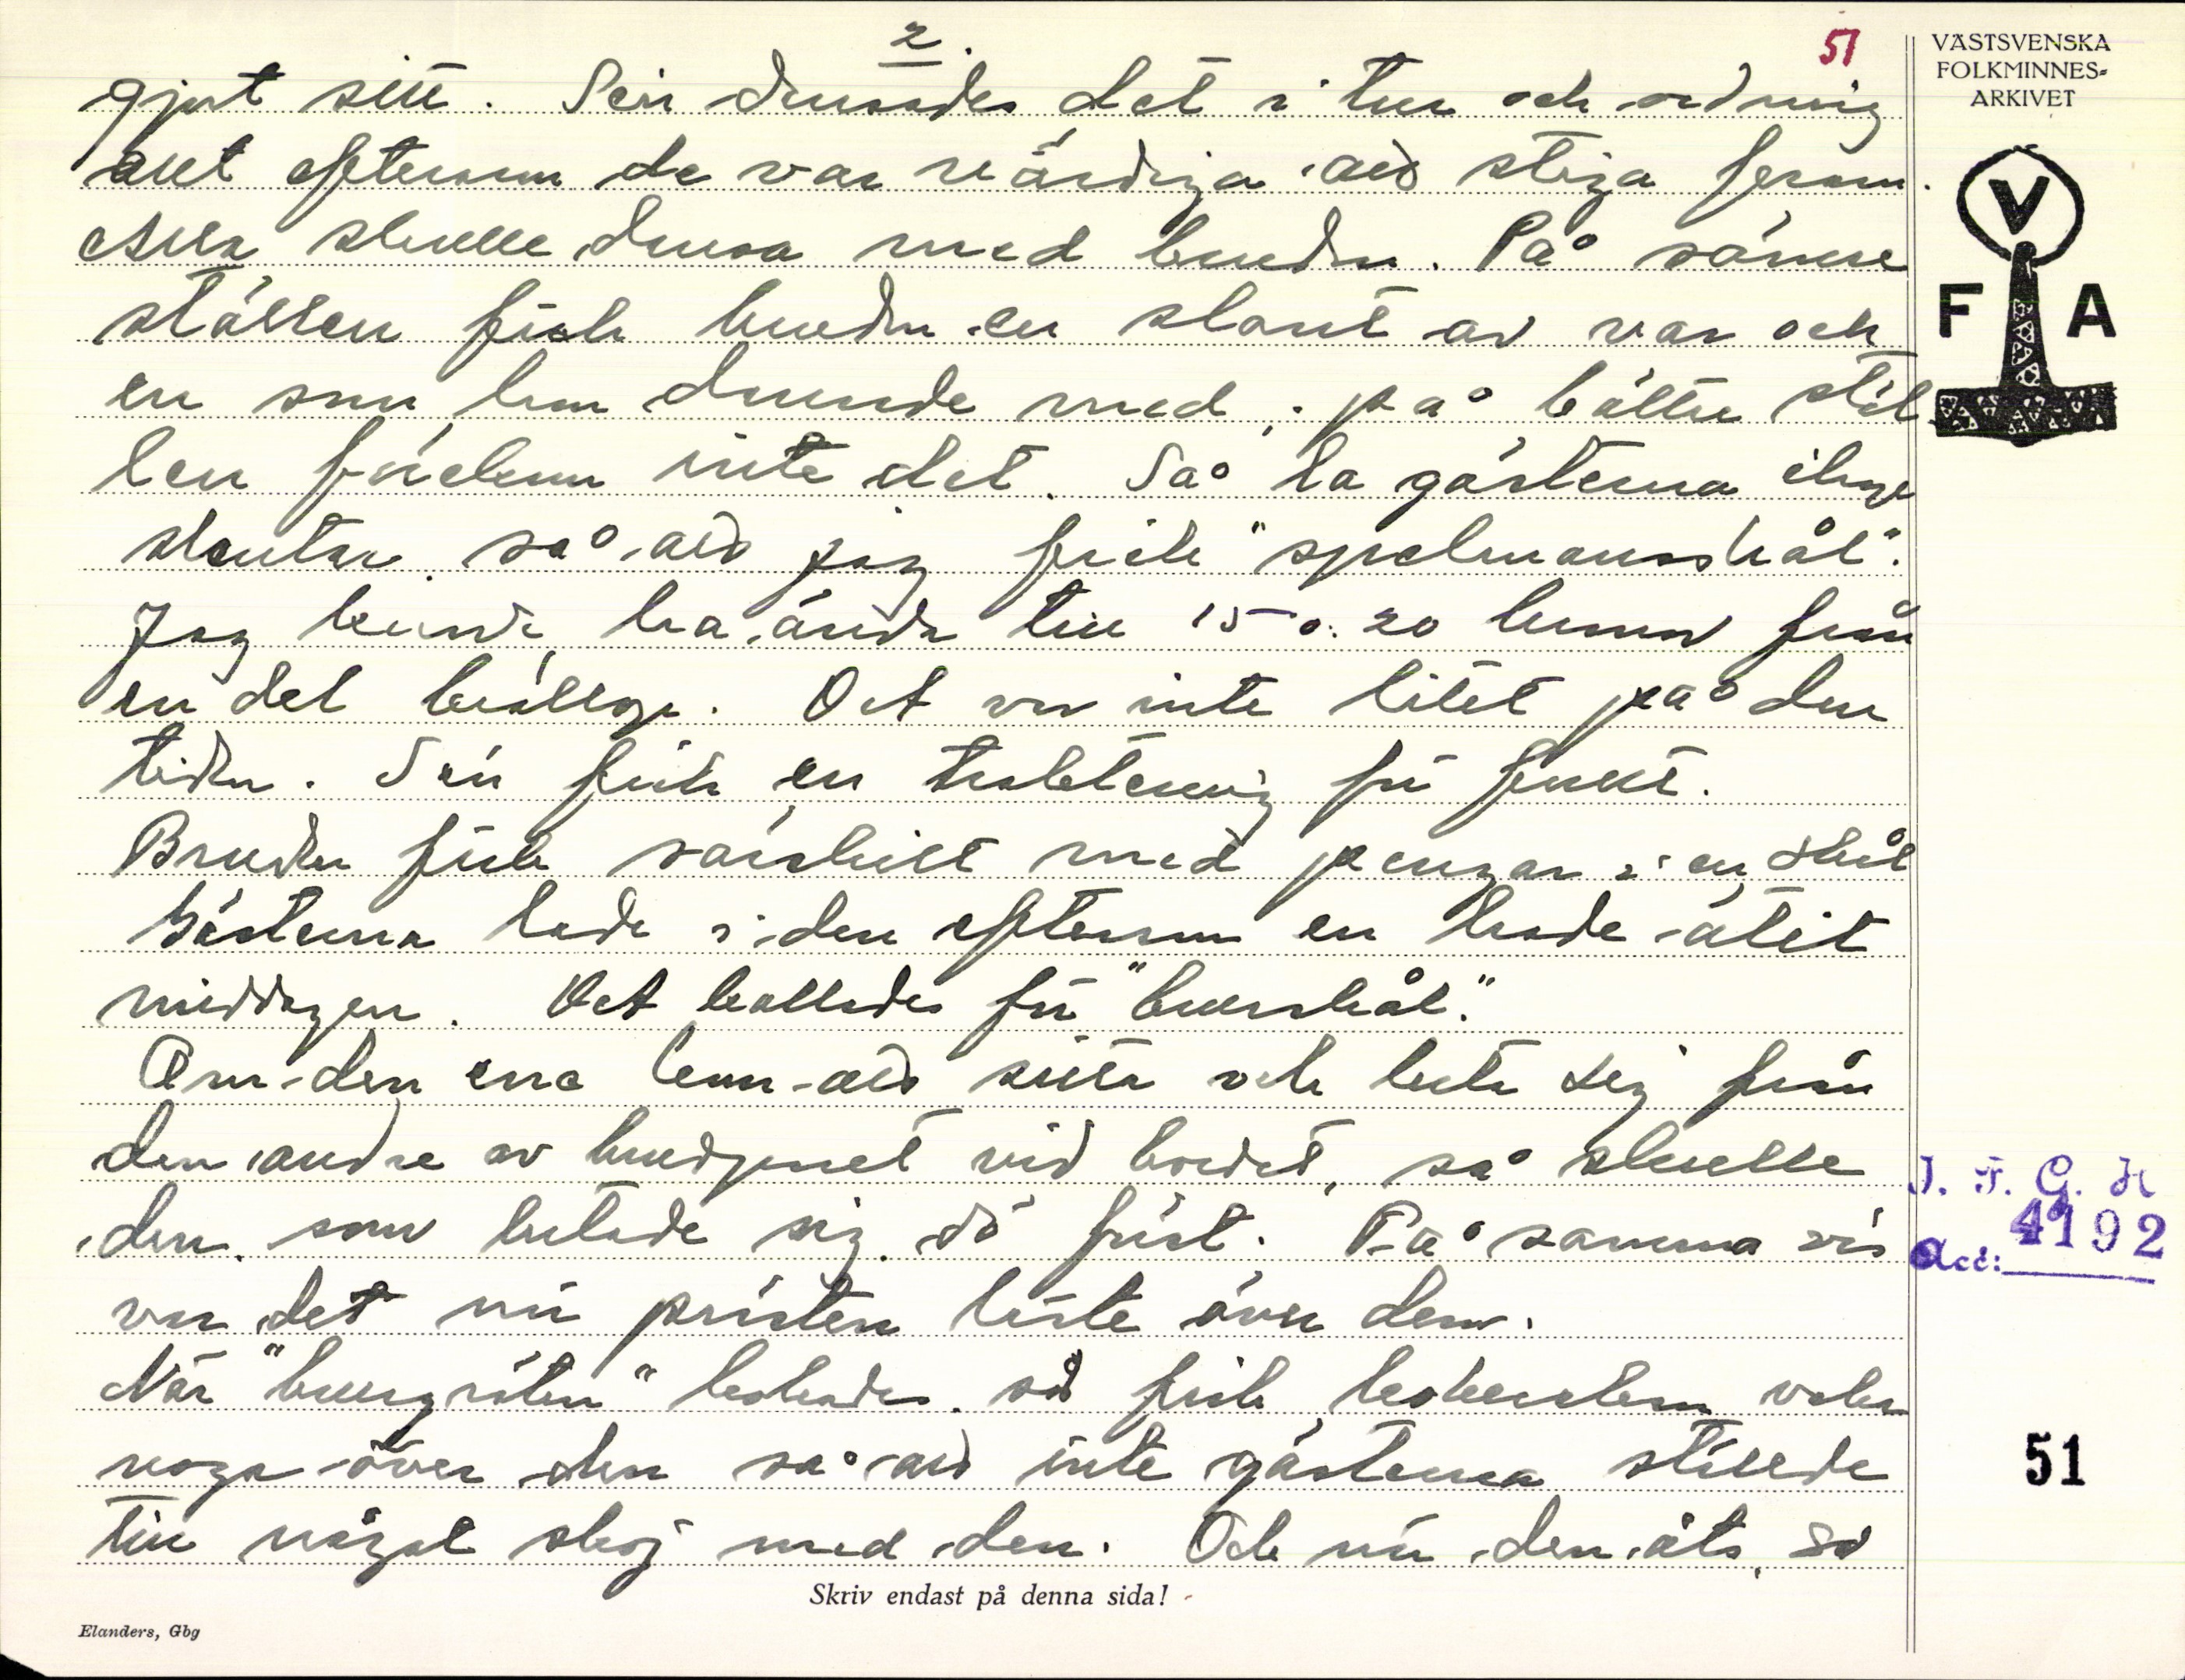 2.
51
VÄSTSVENSKA
FOLKMINNES-
ARKIVET
gjort sitt. Sen dansades det i tur och ordning
allt eftersom de var värdiga att stiga fram.
Alla skulle dansa med bruden. På sämre
ställen fick bruden en slant av var och
en som hon dansade med, på bättre stäl
len förekom inte det. Så la gästerna ihop
slantar så att jag fick "spelmansskål".
Jag kunde ha ända till 15 o. 20 kronor från
en del bröllop. Det var inte litet på den
tiden. Sen fick en traktering för fullt.
Bruden fick särskilt med pengar i en skål
Gästerna lade i den eftersom en hade ätit
middagen. Det kallades för "bruskål".
Om den ena kom att sitta och luta sig från
den andre av brudparet vid bordet, så skulle
den som lutade sig dö först. På samma vis
var det när prästen läste över dem.
När "brurgröten" kokades så fick kokerskan vaka
noga över den så att inte gästerna ställde
till något skoj med den. Och när den äts, så
V
F A
I. F. G. H
4192
Acc:
51
Skriv endast på denna sida!
Elanders, Gbg